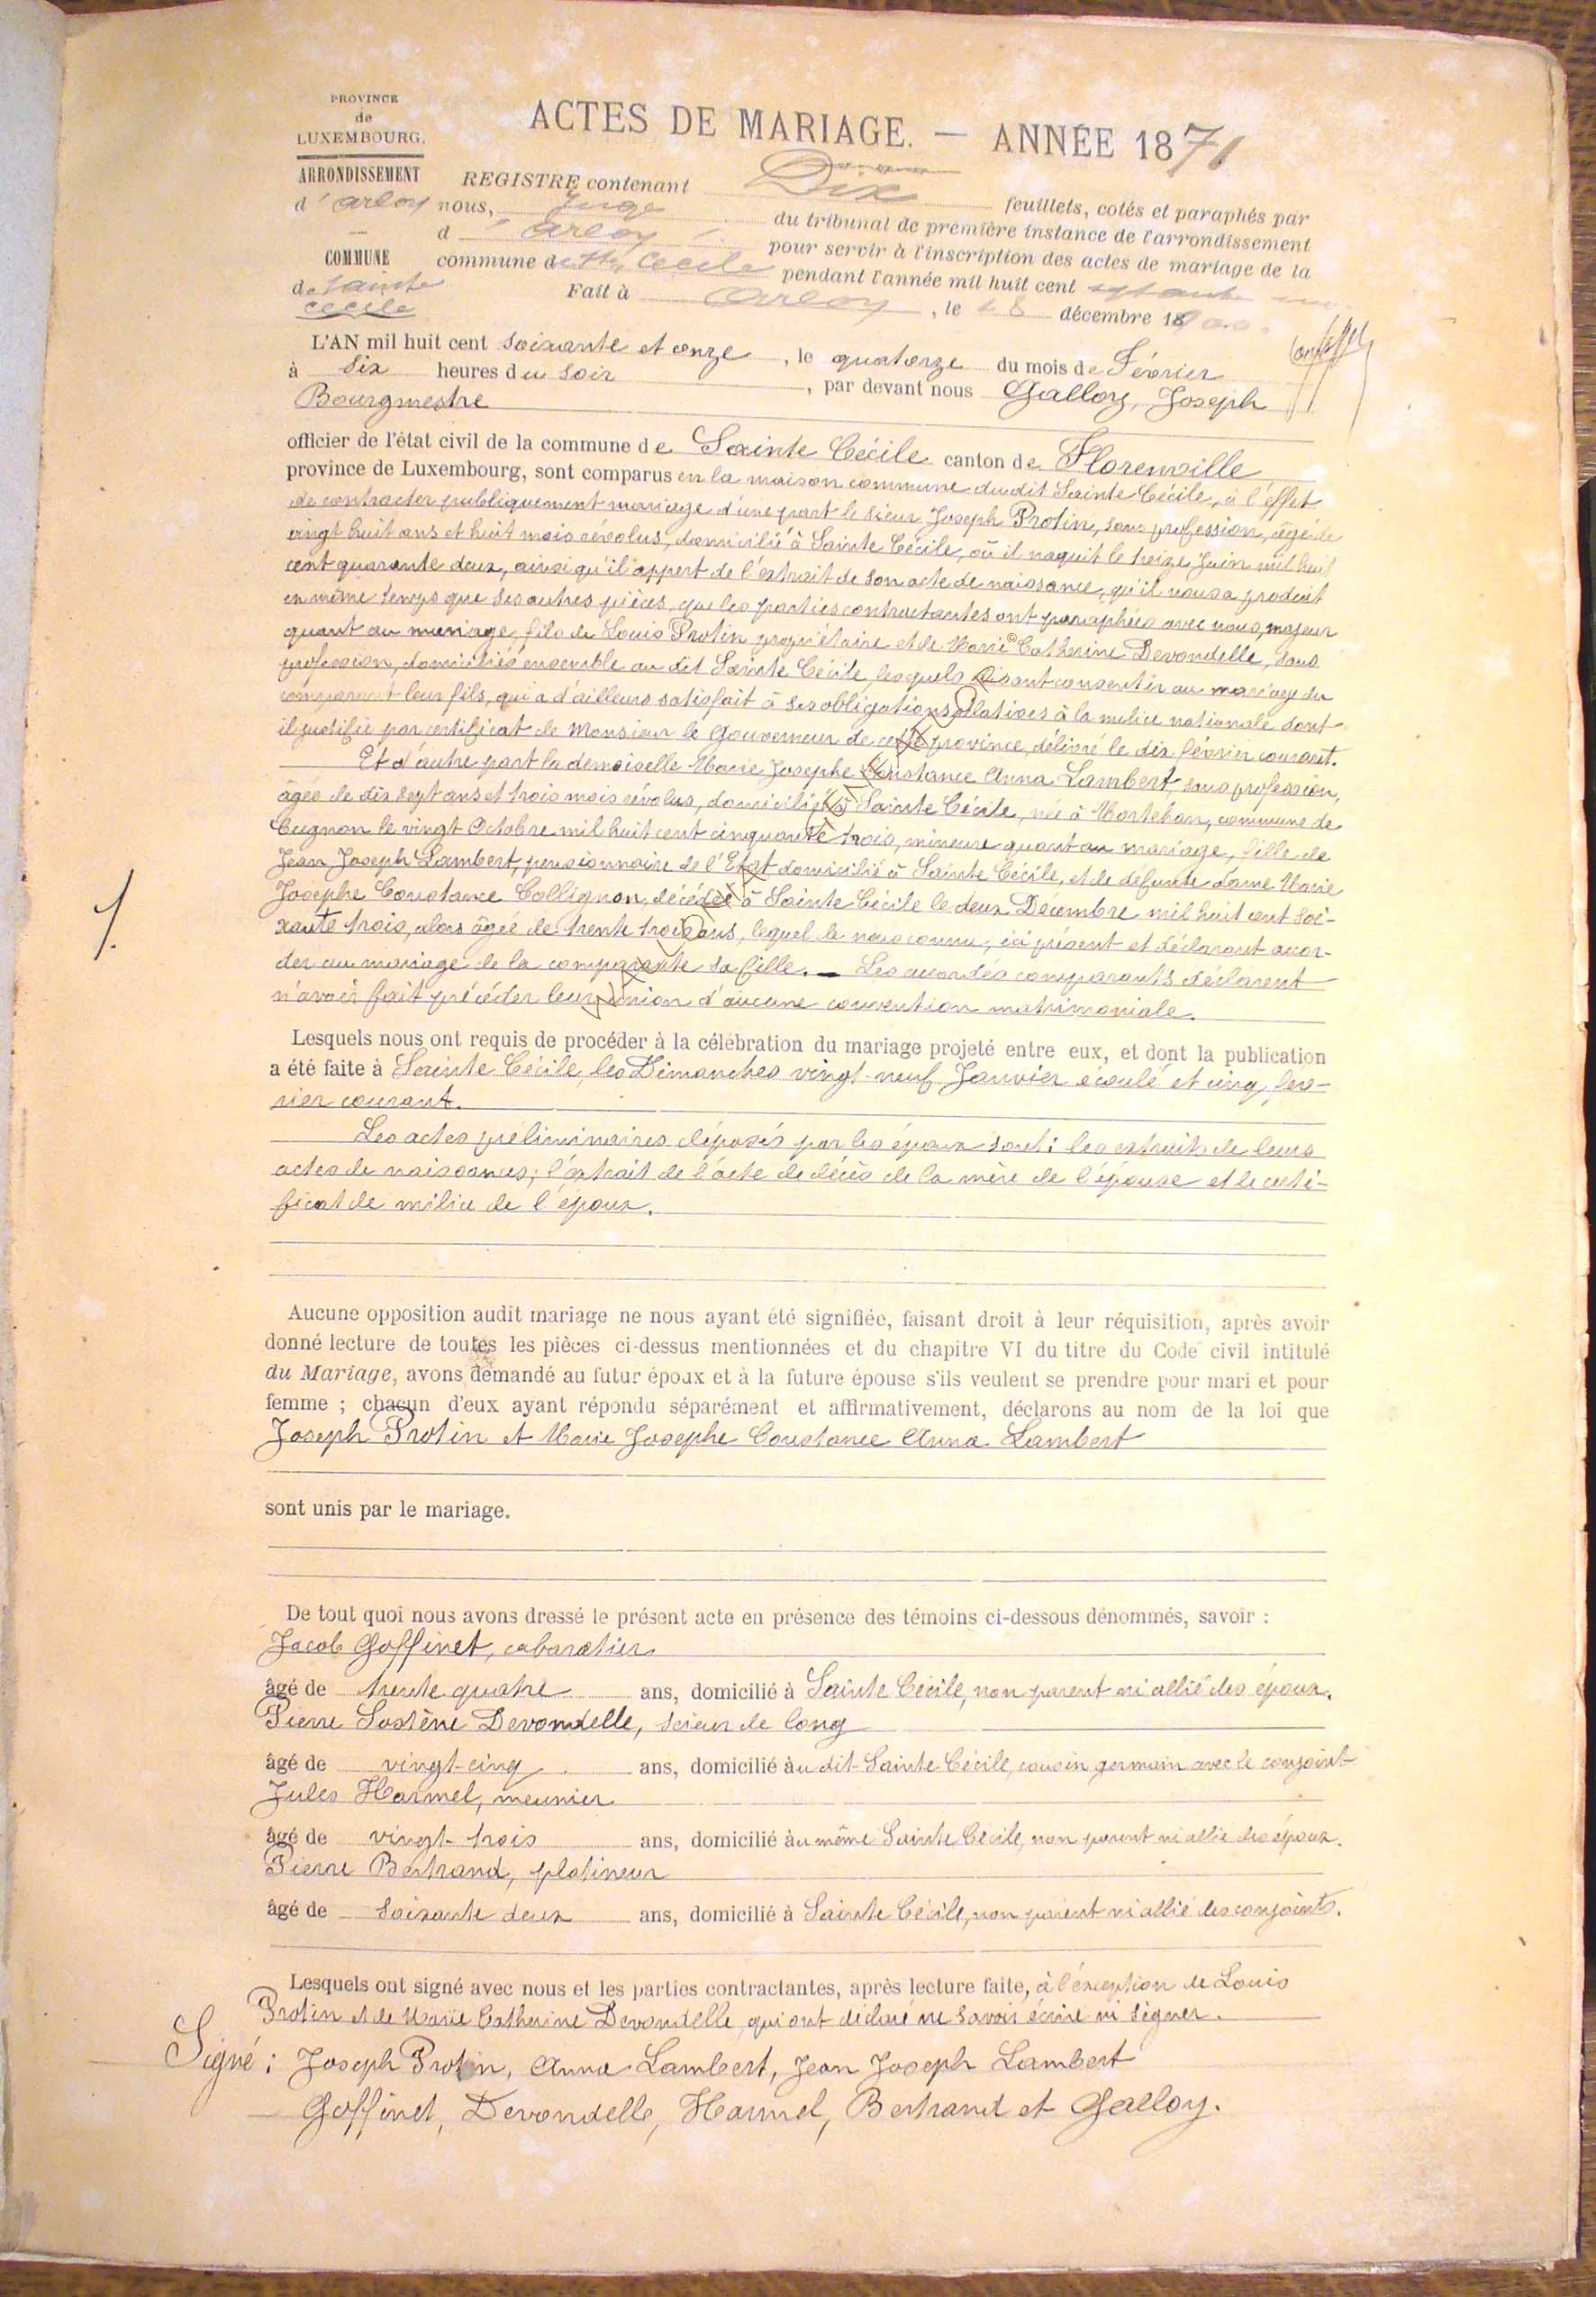 PROVINCE
de
LUXEMBOURG.
ARRONDISSEMENT
d'Arlon
COMMUNE
de Sainte
Cécile
ACTES DE MARIAGE. — ANNÉE 1871
REGISTRE contenant Dix feuillets, cotés et paraphés par
nous, Juge du tribunal de première instance de l'arrondissement
d'Arlon pour servir à l'inscription des actes de mariage de la
commune de Ste Cécile pendant l'année mil huit cent septante un
Fait à Arlon, le 28 décembre 18
L'AN mil huit cent soixante et onze, le quatorze du mois de Février
à six heures du soir, par devant nous Galloy, Joseph
Bourgmestre
officier de l'état civil de la commune de Sainte Cécile canton de Florenville
province de Luxembourg, sont comparus en la maison commune du dit Sainte Cécile, à l'effet
de contracter publiquement mariage d'une part le sieur Joseph Protin, sans profession, âgé de
vingt huit ans et huit mois révolus, domicilié à Sainte Cécile, où il naquit le treize Juin mil huit
cent quarante deux, ainsi qu'il appert de l'extrait de son acte de naissance, qu'il nous a produit
en même temps que ses autres pièces, que les parties contractantes ont paraphées avec nous, majeur
quant au mariage, fils de Louis Protin propriétaire et de Marie Catherine Devondelle, sans
profession, domiciliés ensemble au dit Sainte Cécile, lesquels disant consentir au mariage du
comparant leur fils, qui a d'ailleurs satisfait à ses obligations relatives à la milice nationale dont
il justifie par certificat de Monsieur le Gouverneur de cette province, délivré le dix février courant.
Et d'autre part la demoiselle Marie Josephe Constance Anna Lambert, sans profession,
âgée de dix sept ans et trois mois révolus, domiciliée à Sainte Cécile, née à Mortehan, commune de
Cugnon le vingt Octobre mil huit cent cinquante trois, mineure quant au mariage, fille de
Jean Joseph Lambert, pensionnaire de l'Etat domicilié à Sainte Cécile, et de défunte dame Marie
Josephe Constance Collignon, décédée à Sainte Cécile le deux Décembre mil huit cent soi-
xante trois, alors âgée de trente trois ans, lequel de nous connu, ici présent et déclarant accor-
der au mariage de la comparante sa fille. — Les accordés comparants déclarent
n'avoir fait précéder leur union d'aucune convention matrimoniale.
1.
Lesquels nous ont requis de procéder à la célébration du mariage projeté entre eux, et dont la publication
a été faite à Sainte Cécile, les Dimanches vingt-neuf Janvier écoulé et cinq fév-
rier courant.
Les actes préliminaires déposés par les époux sont : les extraits de leurs
actes de naissances ; l'extrait de l'acte de décès de la mère de l'épouse et le certi-
ficat de milice de l'époux.
Aucune opposition audit mariage ne nous ayant été signifiée, faisant droit à leur réquisition, après avoir
donné lecture de toutes les pièces ci-dessus mentionnées et du chapitre VI du titre du Code civil intitulé
du Mariage, avons demandé au futur époux et à la future épouse s'ils veulent se prendre pour mari et pour
femme ; chacun d'eux ayant répondu séparément et affirmativement, déclarons au nom de la loi que
Joseph Protin et Marie Josephe Constance Anna Lambert
sont unis par le mariage.
De tout quoi nous avons dressé le présent acte en présence des témoins ci-dessous dénommés, savoir :
Jacob Goffinet, cabaretier
âgé de trente quatre ans, domicilié à Sainte Cécile, non parent ni allié des époux.
Pierre Sostène Devondelle, scieur de long
âgé de vingt-cinq ans, domicilié au dit Sainte Cécile, cousin germain avec le conjoint
Jules Harmel, meunier
âgé de vingt-trois ans, domicilié au même Sainte Cécile, non parent ni allié des époux.
Pierre Bertrand, platineur
âgé de soixante deux ans, domicilié à Sainte Cécile, non parent ni allié des conjoints.
Lesquels ont signé avec nous et les parties contractantes, après lecture faite, à l'exception de Louis
Protin et de Marie Catherine Devondelle, qui ont déclaré ne savoir écrire ni signer.
Signé : Joseph Protin, Anna Lambert, Jean Joseph Lambert
Goffinet, Devondelle, Harmel, Bertrand et Galloy.